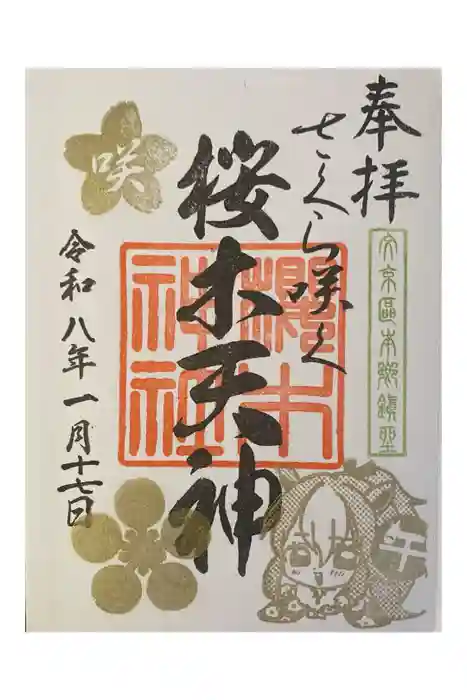 奉拝
文京區本郷鎮坐
さくら咲く
桜木天神
櫻木
神社
咲
令和八年一月十七日
午